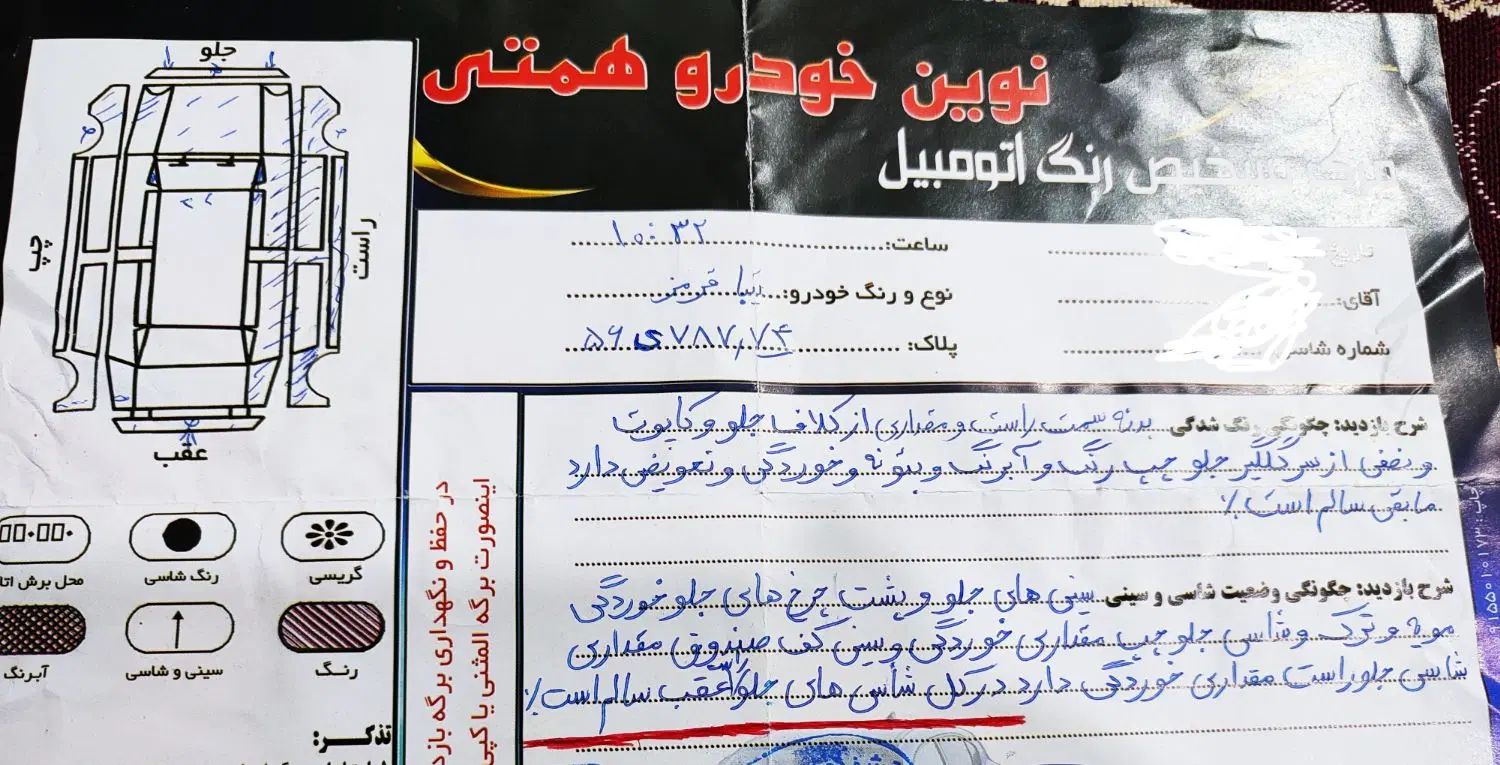 نوین خودرو همتی
مرکز تشخیص رنگ اتومبیل
تاریخ:
ساعت: ۱۰:۳۲
آقای:
نوع و رنگ خودرو: تیبا قرمز
شماره شاسی
پلاک: ۵۶ی۷۸۷,۷۴
شرح بازدید: چگونگی رنگ شدگی بدنه سمت راست و مقداری از کلاف جلو و کاپوت
و نصفی از سرگلگیر جلو چپ رنگ و آبرنگ و بتونه و خوردگی و تعویض دارد
مابقی سالم است ٪
شرح بازدید: چگونگی وضعیت شاسی و سینی سینی های جلو و پشت چرخ های جلو خوردگی
مویه و ترک و شاسی جلو چپ مقداری خوردگی و سینی کف صندوق مقداری
شاسی جلو راست مقداری خوردگی دارد در کل شاسی های جلو و عقب سالم است ٪
جلو
چپ
راست
عقب
گریسی
رنگ شاسی
محل برش اتا
رنگ
سینی و شاسی
آبرنگ
تذکر:
در حفظ و نگهداری برگه بازد
اینصورت برگه المثنی یا کپی